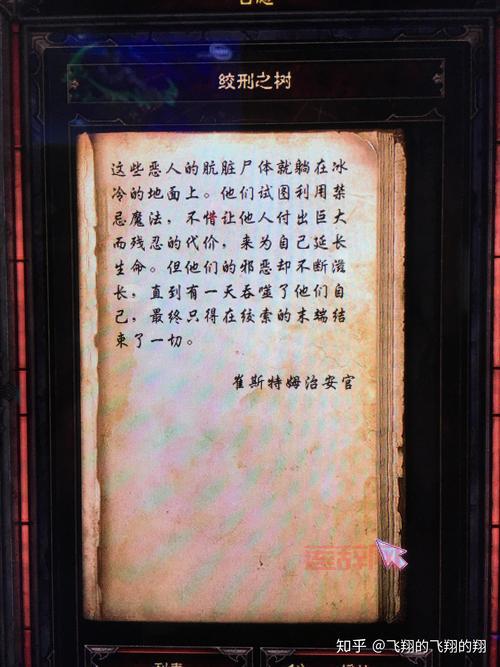 绞刑之树
这些恶人的肮脏尸体就躺在冰
冷的地面上。他们试图利用禁
忌魔法，不惜让他人付出巨大
而残忍的代价，来为自己延长
生命。但他们的邪恶却不断滋
长，直到有一天吞噬了他们自
己，最终只得在绞索的末端结
束了一切。
崔斯特姆治安官
知乎 @飞翔的飞翔的翔